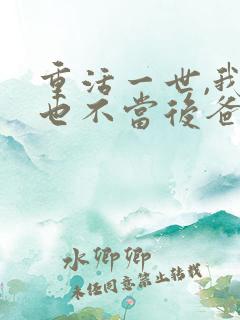 重活一世,我
也不當後爸
水卿卿
未经同意禁止转载